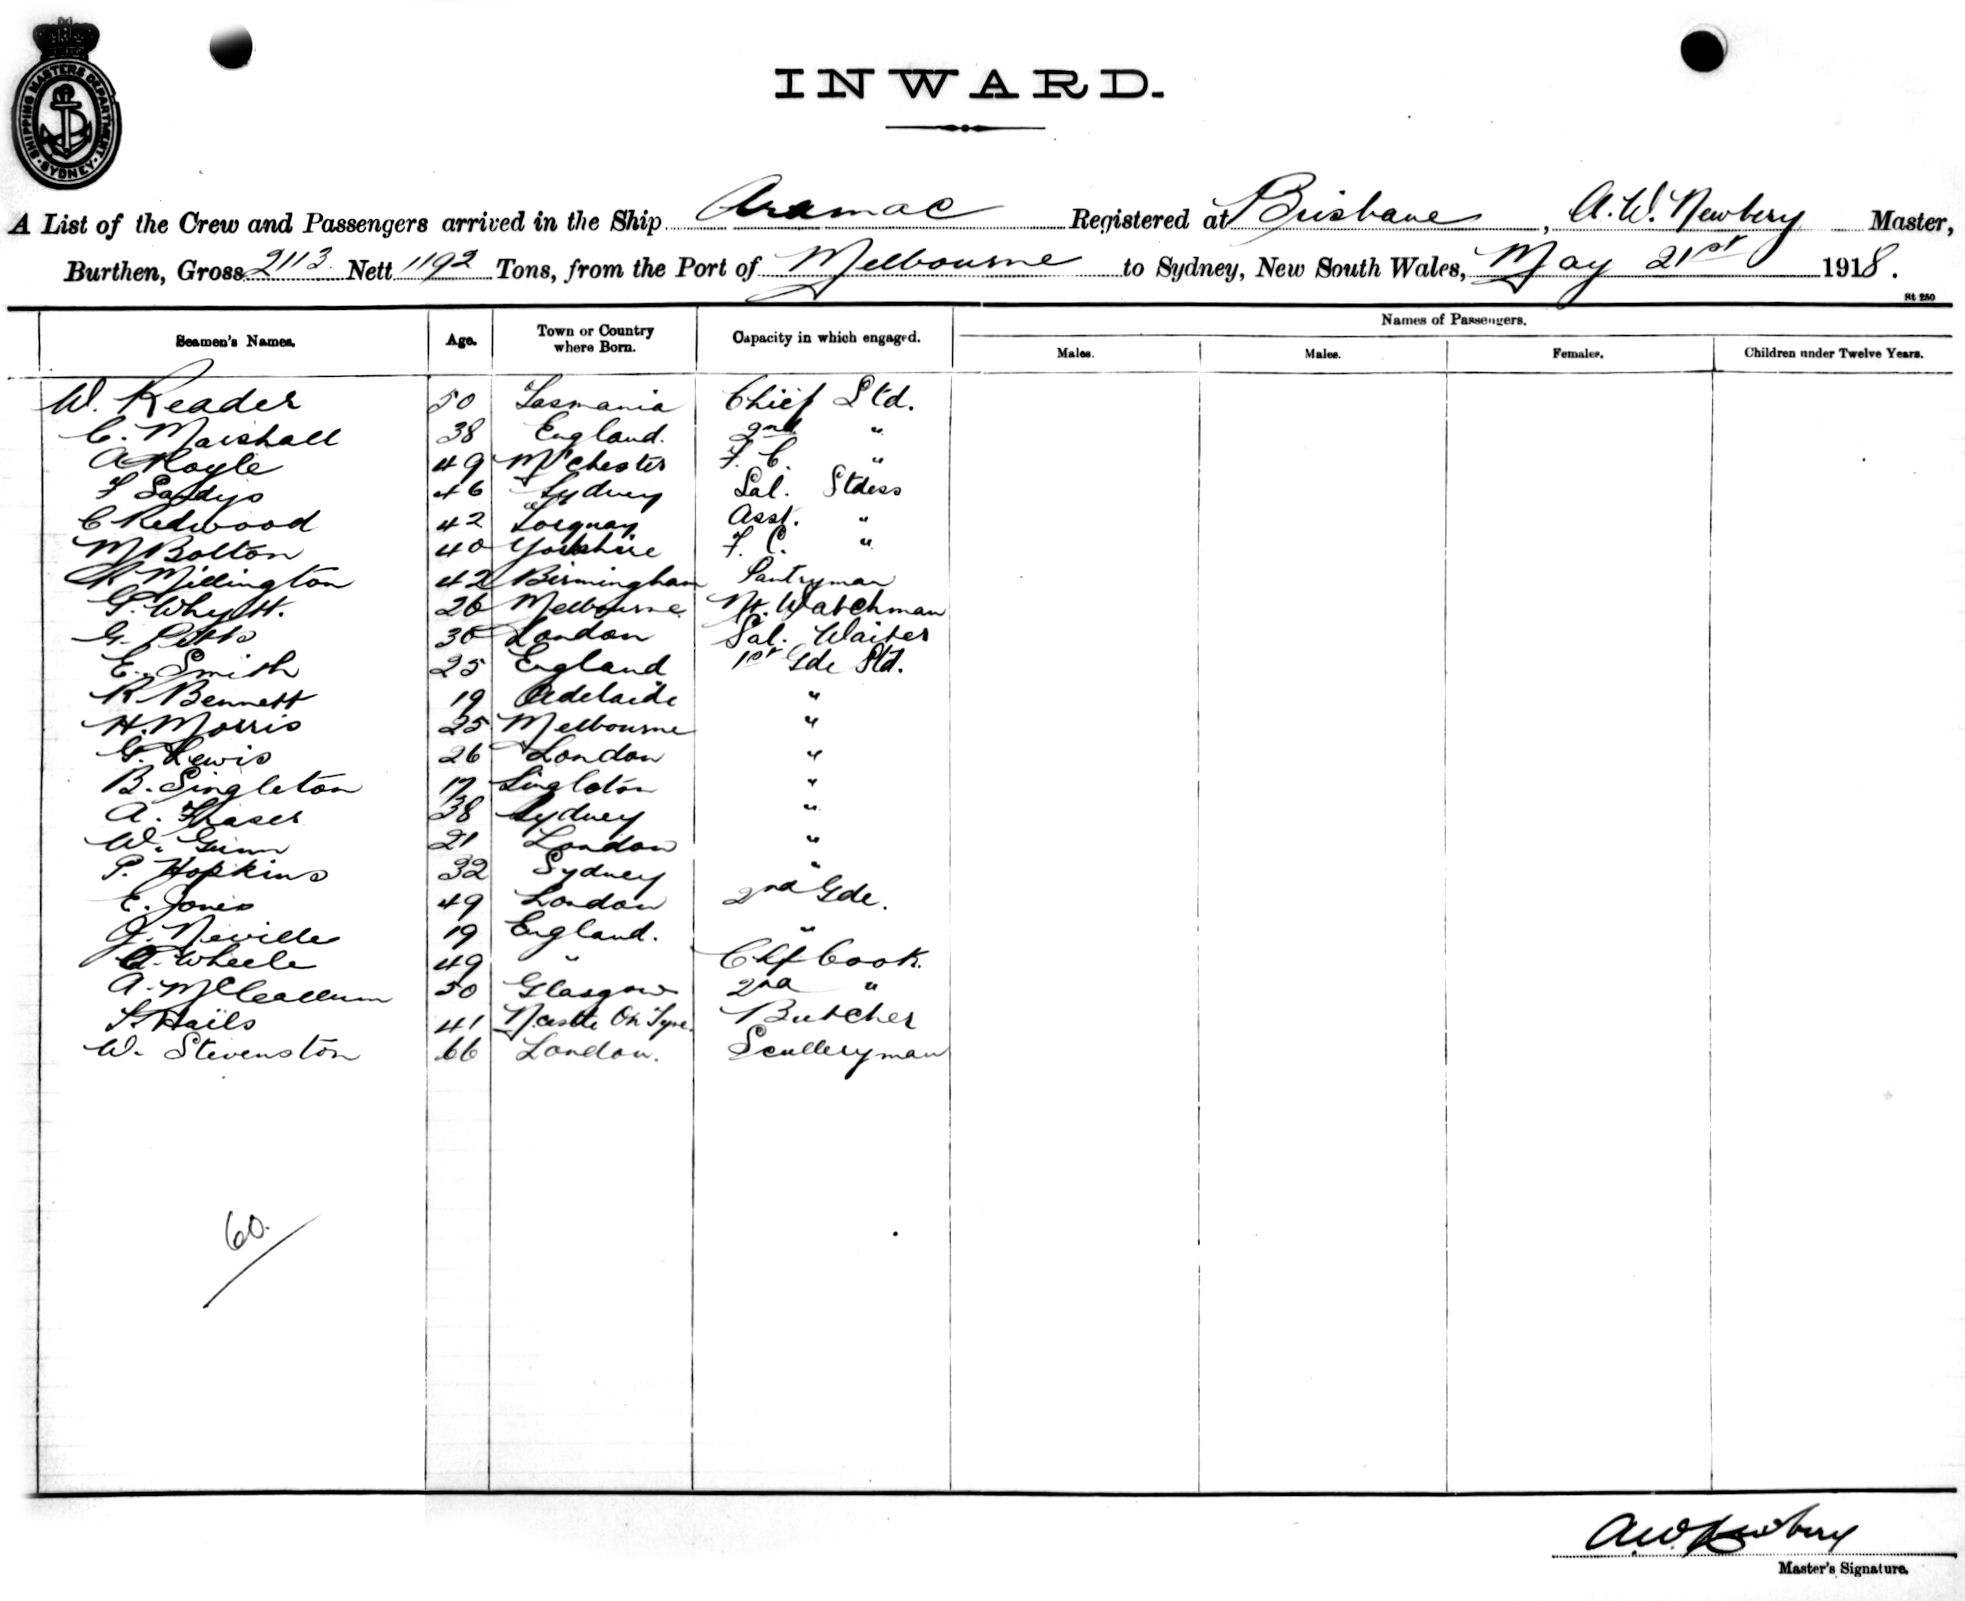 SHIPPING MASTERS DEPARTMENT
SYDNEY
INWARD.
A List of the Crew and Passengers arrived in the Ship Aramac Registered at Brisbane, A. W. Newbery Master,
Burthen, Gross 2113 Nett 1192 Tons, from the Port of Melbourne to Sydney, New South Wales, May 21st 1918.
St 250
Seamen's Names. Age. Town or Country where Born. Capacity in which engaged. Names of Passengers.
Males. Males. Females. Children under Twelve Years.
W. Reader 50 Tasmania Chief Std.
C. Marshall 38 England. 2nd "
A Hoyle 49 M'chester F. C. "
F Sandys 46 Sydney Sal. Stdess
C Redwood 42 Torquay Asst. "
M Bolton 40 Yorkshire F. C. "
Millington 42 Birmingham Pantryman
G. Whyatt. 26 Melbourne Nt. Watchman
G. Petts 30 London Sal. Waiter
E. Smith 25 England 1st Gde Std.
R Bennett 19 Adelaide "
H. Morris 25 Melbourne "
G. Lewis 26 London "
B. Singleton 17 Singleton "
A. Fraser 38 Sydney "
W. Gunn 21 London "
P. Hopkins 32 Sydney "
E. Jones 49 London 2nd Gde.
J. Neville 19 England. "
Wheele 49 " Chf Cook.
A. McCleallum 50 Glasgow 2nd "
Hails 41 N.castle On Tyne. Butcher
W. Stevenston 66 London. Sculleryman
60.
A.W. Newbery
Master's Signature.